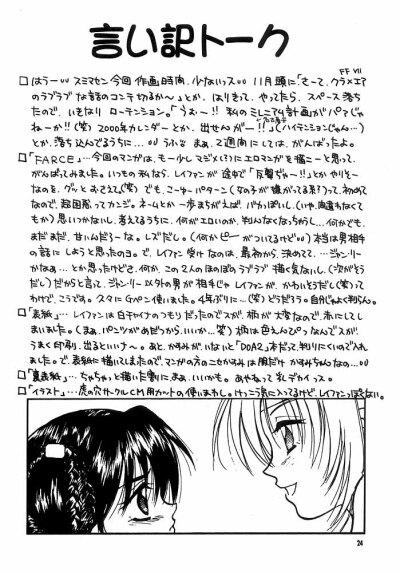 言い訳トーク
FF VII
□はうー‥スミマセン今回作画時間少ないっス‥11月頭に「さーて、クラ×エア
のラブラブな話のコンテ切るか~」とか、はりきって、やってたら、スペース落ち
たので、いきなりローテンション。「うおー!!私のミレニアム計画がパァじゃ
ねーか!!(笑)2000年カレンダーとか、出せんがー!!」(ハイテンションじゃん…)
とか、落ち込んでるうちに…
2週間にしては、がんばったよ。
□「FARCE」…今回のマンガは、もー少しマジメ(?)にエロマンガを描こーと思って、
がんばってみました。いつもなら、レイファンが途中で「反撃だー!!」とかやりそー
なのを、グッとおさえて(笑)でも、こーゆーパターン
って、初めて
なので、超困惑ってカンジ。ネームとか一歩まちがえば、バカっぽいし、
か)思いつかないし、考えてるうちに、何がエロいのか、判んなくなっちゃうし…何かでも、
まだまだ、甘いんだろーな。レズだし。(何かピーがついてるけど‥)本当は男相手
の話にしようと思ったのョ。で、レイファン受けなのは、最初から、決めてて、…ジャンリー
かなぁ…とか思ったけどさ、何か、この2人のほのぼのラブラブ描く気ないし、
だ)だからと言って、ジャンリー以外の男が相手じゃレイファンが、かわいそうだし(笑)って
わけで、こうです。スタにGペン使いました。4年ぶりに…(笑)どうだろう。自分じゃよく判らん。
□「表紙」…レイファンは白チャイナのつもりだったのでスが、柄が大変なので、赤にしてし
まいました。(まぁ、パンツがめだつからいいか…笑)柄は色えんぴつなんでスが、
うまく印刷、出るといいナ~。あと、かすみがいないと「DOA2」本だって、判りにくいので入れ
ました。で、表紙に描いてしまたので、マンガの方のニセかすみは服だけかすみちゃんなの…‥
□「裏表紙」…ちゃちゃっと描いた割に、まぁ、いいかも。あやねって乳デカイっス。
□「イラスト」…虎の穴サークルCM用カットの使いまわし。けっこう気に入ってるけど、レイファンっぽくない。
24